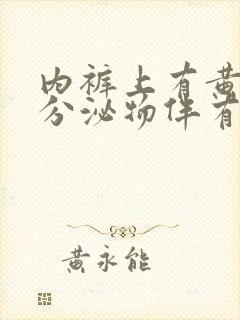 内裤上有黄
分泌物伴有
黄永能